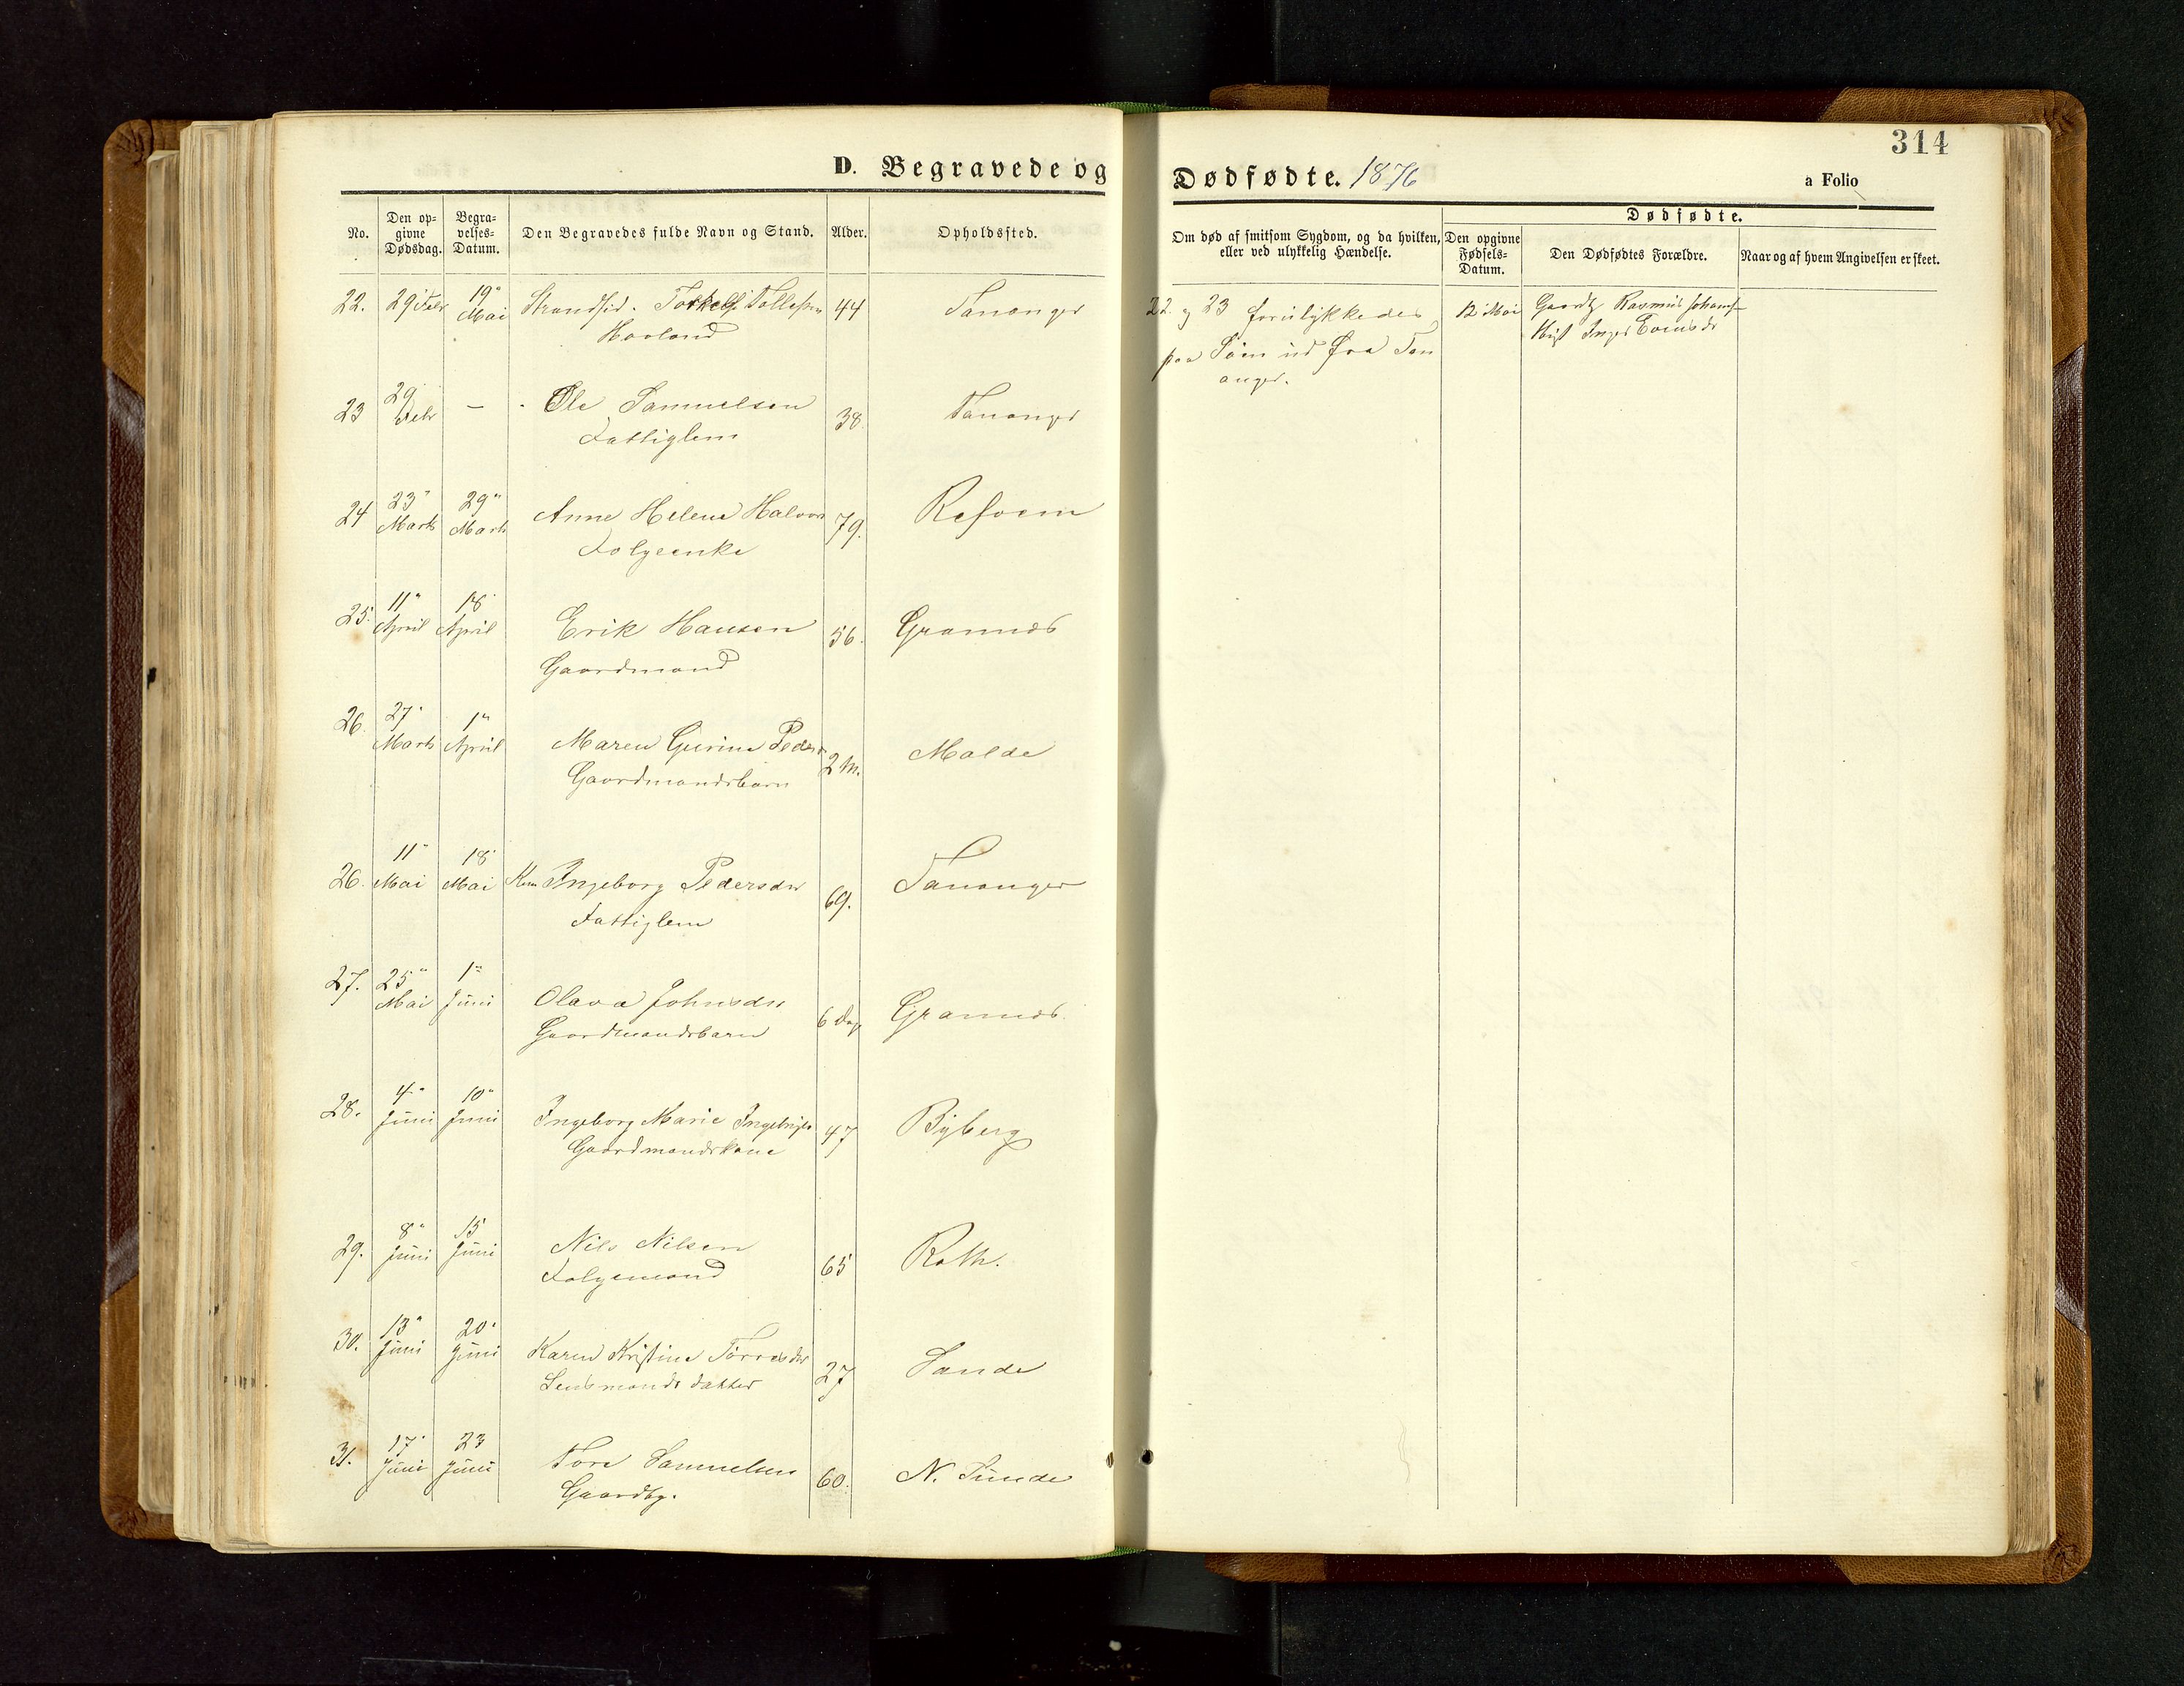 314
D. Begravede og Dødfødte. 1876
a Folio
No.
Den opgivne Dødsdag.
Begravelses-Datum.
Den Begravedes fulde Navn og Stand.
Alder.
Opholdssted.
Om død af smitsom Sygdom, og da hvilken, eller ved ulykkelig Hændelse.
Dødfødte.
Den opgivne Fødsels-Datum.
Den Dødfødtes Forældre.
Naar og af hvem Angivelsen er skeet.
22. 29 Febr 19" Mai Strandsid. Torkel Tollefsen 44 Tananger
Havland
22. og 23 forulykkedes
paa Søen ud fra Tan
anger.
12 Mai Gaardbr Rasmus Johans
Inger Evensdr
23 29 Febr — Ole Samuelsen 38. Tananger
Fattiglem
24 23" Marts 29" Marts Anne Helene Halvors 79.
Folgeenke
25. 11" April 18" April Erik Hansen 56. Grannes
Gaardmand
26. 27" Marts 1" April Maren Gurine Peders 2 M. Malde
Gaardmandsbarn
26. 11" Mai 18" Mai Ingeborg Pedersdr 69. Tananger
Fattiglem
27. 25" Mai 1" Juni Olava Johnsdr 6 Dag Grannes
Gaardmandsbarn
28. 4" Juni 10" Juni Ingeborg Marie Ingebrigts 47 Byberg
Gaardmandskone
29. 8" Juni 15 Juni Nils Nilsen 65 Roth.
Folgemand
30. 13" Juni 20" Juni Karen Kristine Torresdr 27 Sande
Lensmands datter
31. 17" Juni 23 Juni Tore Samuelsen 60. N. Sunde
Gaardbr.